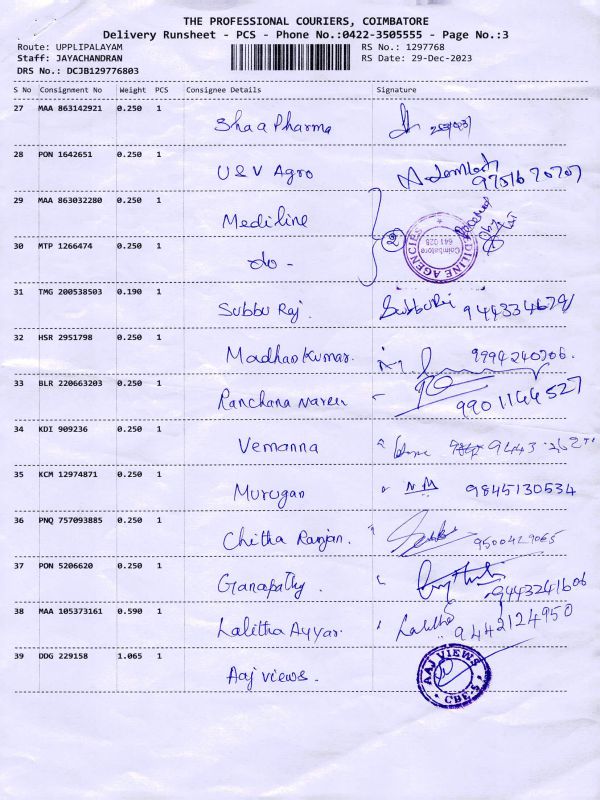 THE PROFESSIONAL COURIERS, COIMBATORE
Delivery Runsheet - PCS - Phone No.:0422-3505555 - Page No.:3
Route: UPPLIPALAYAM RS No.: 1297768
Staff: JAYACHANDRAN RS Date: 29-Dec-2023
DRS No.: DCJB129776803
S No Consignment No Weight PCS Consignee Details Signature
27 MAA 863142921 0.250 1
Shaa Pharma
28 PON 1642651 0.250 1
U&V Agro 9751670707
29 MAA 863032280 0.250 1
Mediline
MEDILINE AGENCIES
Coimbatore
641 028
30 MTP 1266474 0.250 1
do -
31 TMG 200538503 0.190 1
Subbu Raj. SubbuRaj
32 HSR 2951798 0.250 1
Madhan Kumar. 9994240706.
33 BLR 220663203 0.250 1
9901144527
34 KDI 909236 0.250 1
Vemanna 9443
35 KCM 12974871 0.250 1
Murugan NM 9845130534
36 PNQ 757093885 0.250 1
Chitha Ranjan. 9500429065
37 PON 5206620 0.250 1
Ganapathy. 9443241606
38 MAA 105373161 0.590 1
Lalitha Ayyar. Lalitha 9442124950
39 DDG 229158 1.065 1
Aaj views.
AAJ VIEWS
CBE-5